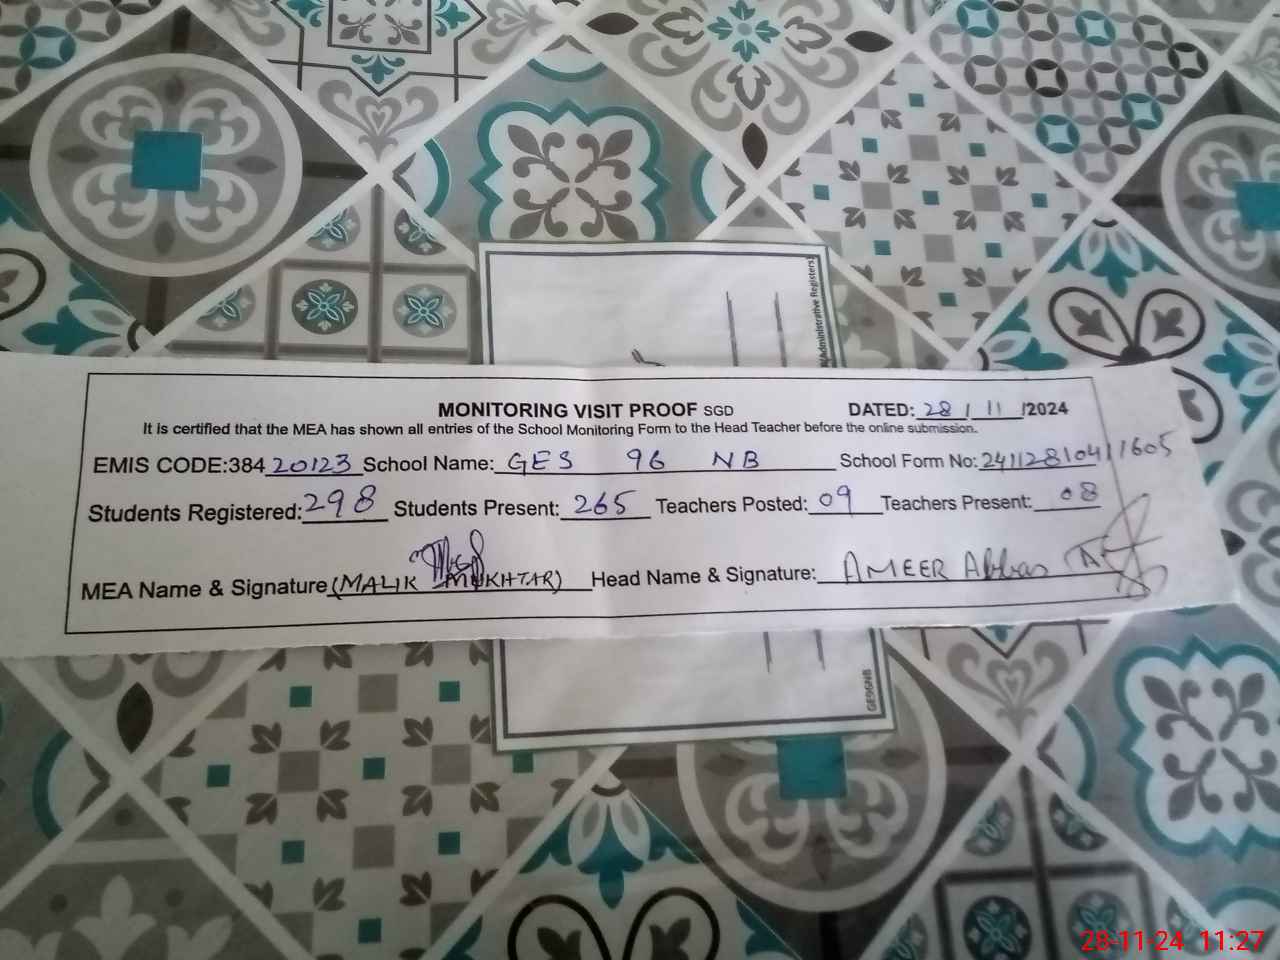 (Administrative Registers)
MONITORING VISIT PROOF SGD DATED: 28 / 11 /2024
It is certified that the MEA has shown all entries of the School Monitoring Form to the Head Teacher before the online submission.
EMIS CODE:384 20123 School Name: GES 96 NB School Form No: 241128104111605
Students Registered: 298 Students Present: 265 Teachers Posted: 09 Teachers Present: 08
MEA Name & Signature (MALIK MUKHTAR) Head Name & Signature: AMEER Abbas
GE96NB
28-11-24 11:27